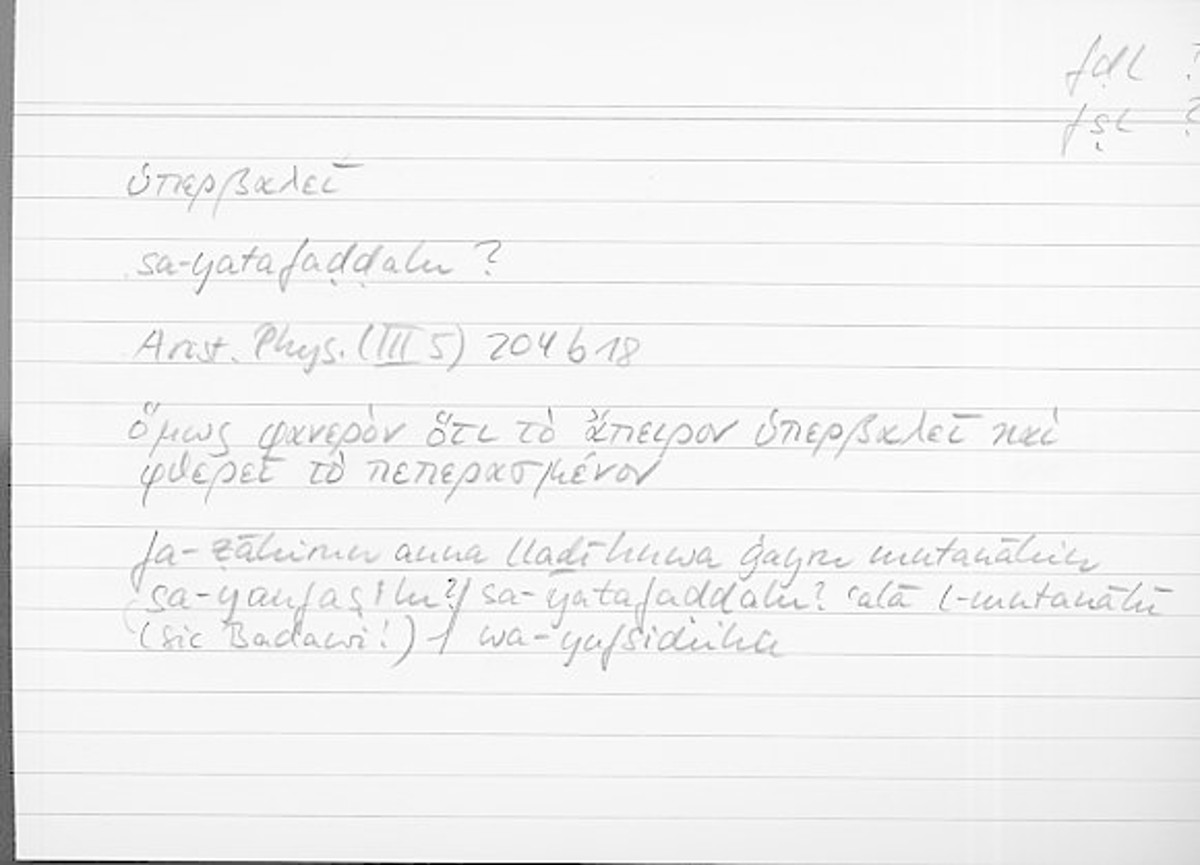 fḍl ?
fṣl ?
ὑπερβαλεῖ
sa-yatafaḍḍalu ?
Arist. Phys. (III 5) 204 b 18
ὅμως φανερὸν ὅτι τὸ ἄπειρον ὑπερβαλεῖ καὶ
φθερεῖ τὸ πεπερασμένον
fa-ẓāhirun anna lladī huwa ġayru mutanāhin
sa-yanfaṣilu?/ sa-yatafaddalu? ʿalā l-mutanāhī
(sic Badawi!) / wa-yufsiduhu